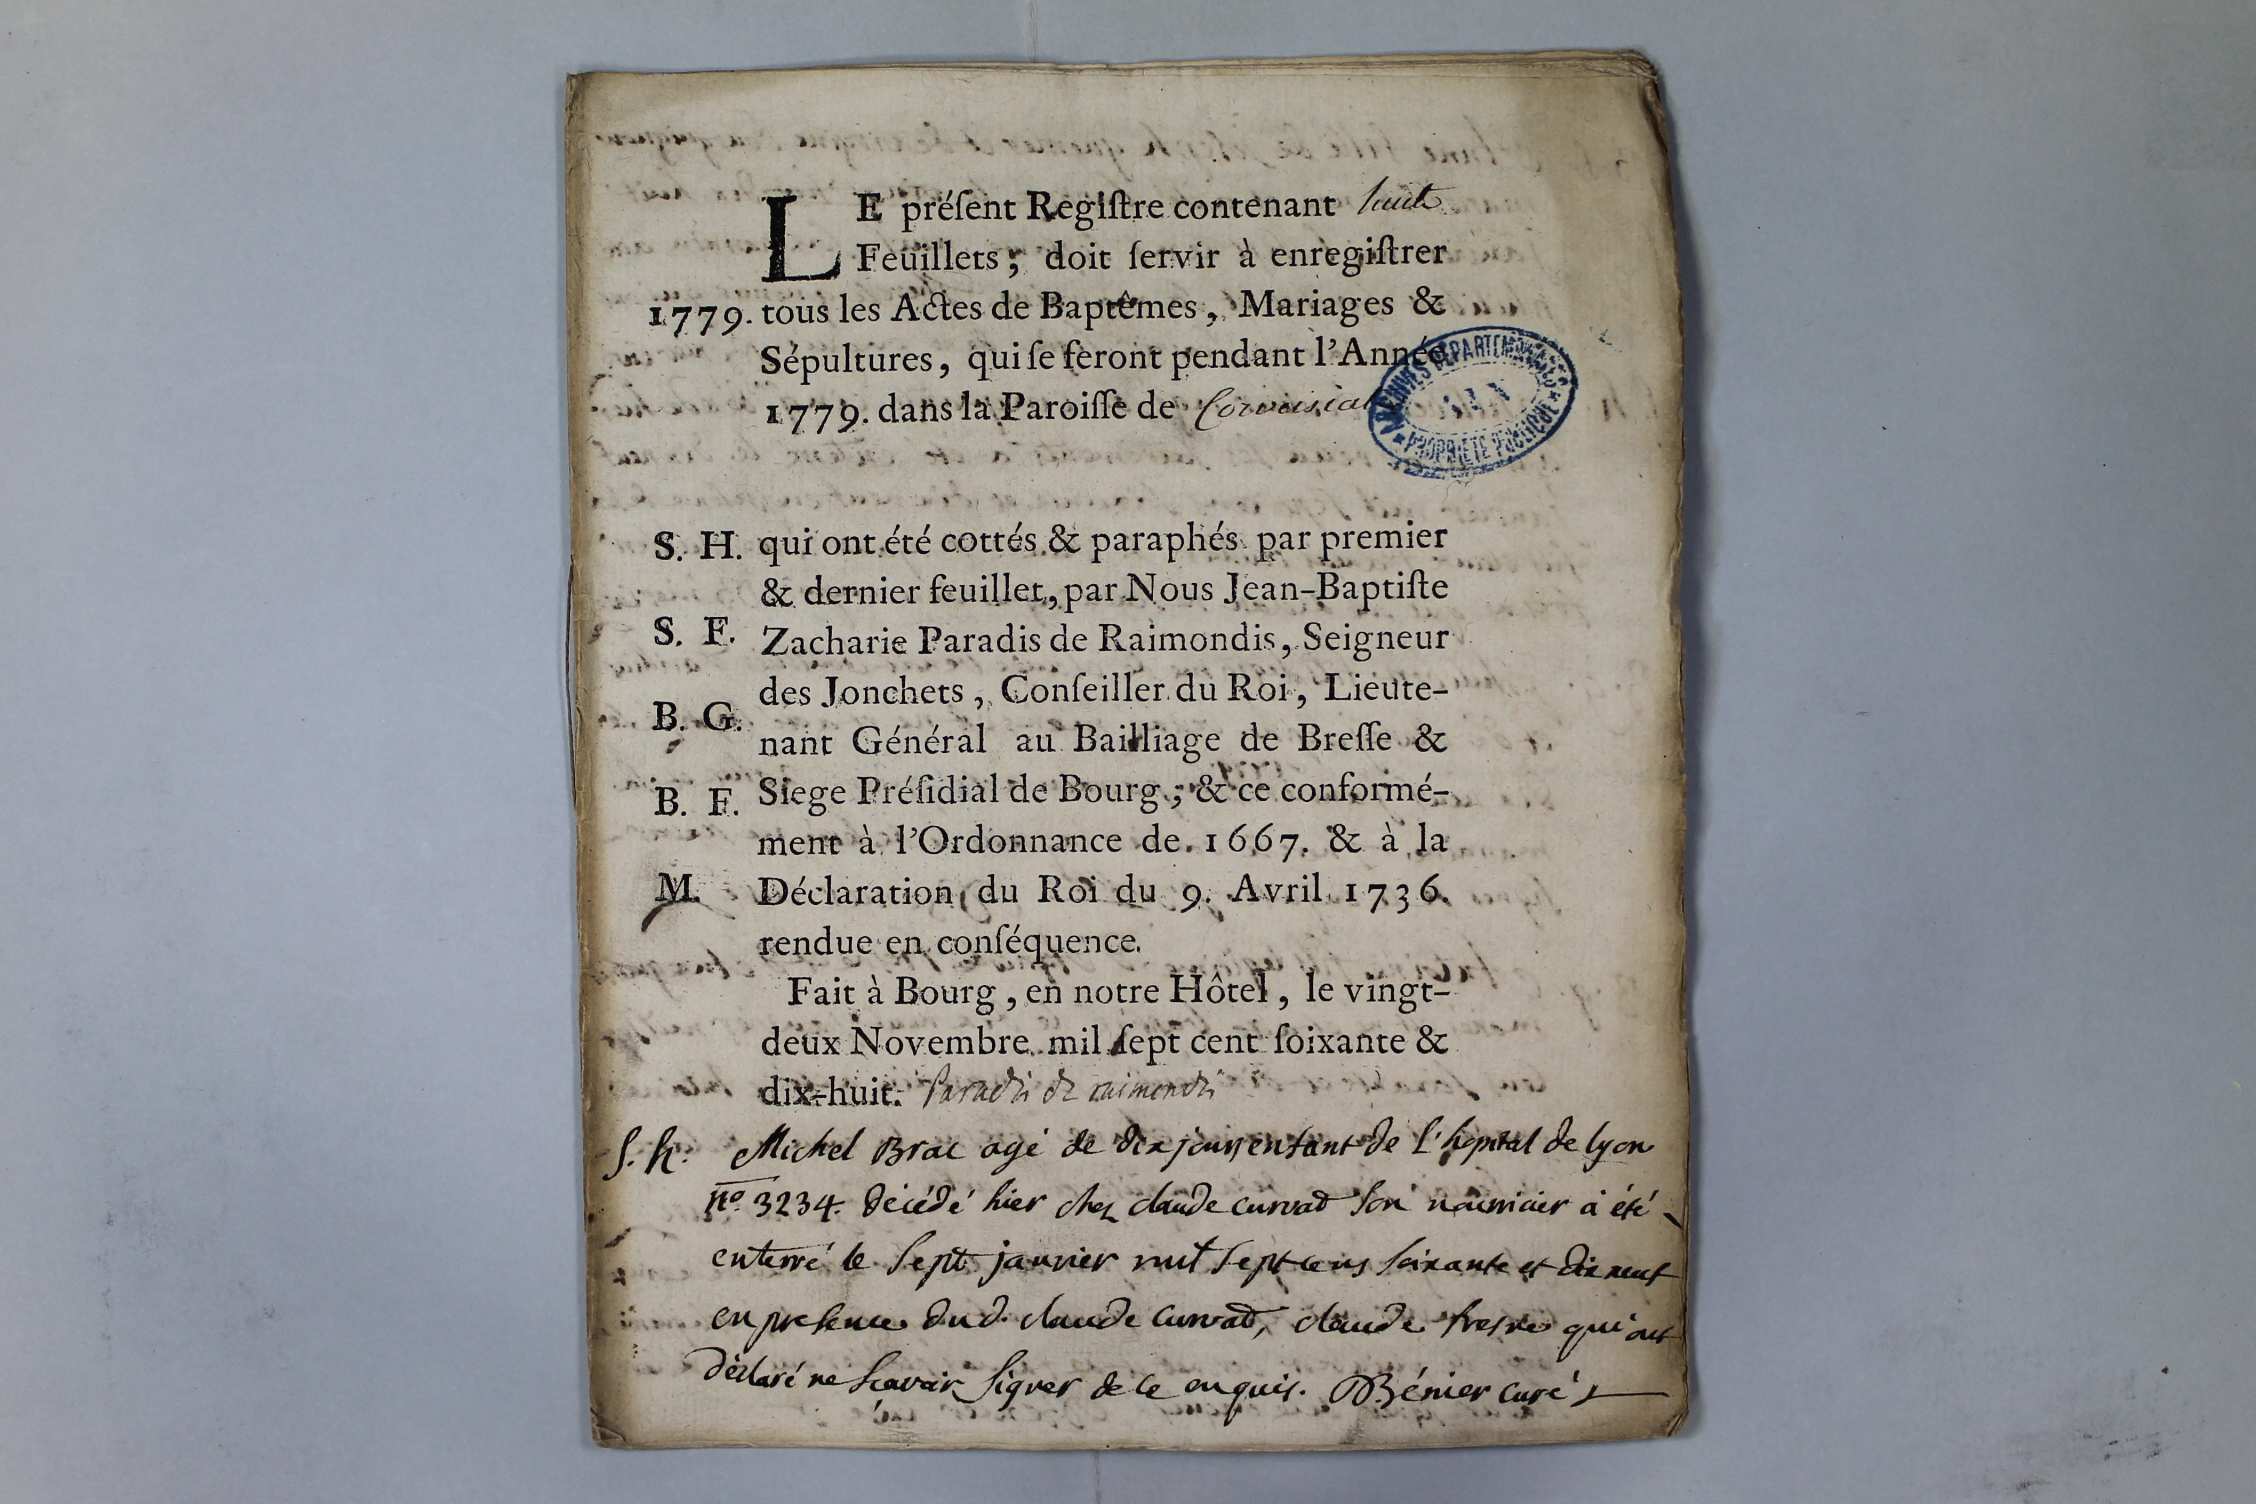 LE préſent Regiſtre contenant huit
Feuillets ; doit ſervir à enregiſtrer
1779. tous les Actes de Baptêmes, Mariages &
Sépultures, qui ſe feront pendant l'Année
1779. dans la Paroiſſe de
ARCHIVES DÉPARTEMENTALES
PROPRIÉTÉ PUBLIQUE
S. H. qui ont été cottés & paraphés par premier
& dernier feuillet, par Nous Jean-Baptiſte
S. F. Zacharie Paradis de Raimondis, Seigneur
des Jonchets, Conſeiller du Roi, Lieute-
B. G. nant Général au Bailliage de Breſſe &
B. F. Siege Préſidial de Bourg ; & ce conformé-
ment à l'Ordonnance de 1667. & à la
M. Déclaration du Roi du 9. Avril 1736.
rendue en conſéquence.
Fait à Bourg, en notre Hôtel, le vingt-
deux Novembre mil ſept cent ſoixante &
dix-huit. Paradis de raimondis
S. h. Michel Brac agé de dix jours enfant de l'hopital de lyon
n.º 3234. décédé hier chez claude curvat son nourricier a été
enterré le sept janvier mil sept cens soixante et dix neuf
en presence dud. claude curvat, claude fresne qui ont
déclaré ne sçavoir signer de ce enquis. Bénier curé